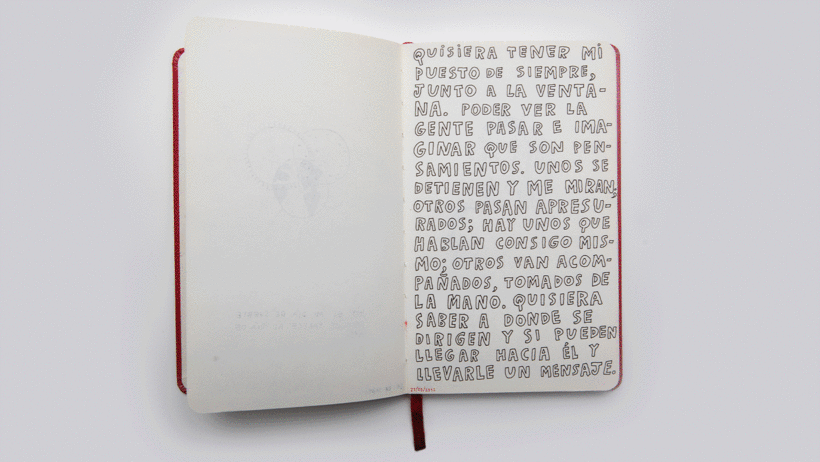 QUISIERA TENER MI
PUESTO DE SIEMPRE,
JUNTO A LA VENTA-
NA. PODER VER LA
GENTE PASAR E IMA-
GINAR QUE SON PEN-
SAMIENTOS. UNOS SE
DETIENEN Y ME MIRAN,
OTROS PASAN APRESU-
RADOS; HAY UNOS QUE
HABLAN CONSIGO MIS-
MO; OTROS VAN ACOM-
PAÑADOS, TOMADOS DE
LA MANO. QUISIERA
SABER A DONDE SE
DIRIGEN Y SI PUEDEN
LLEGAR HACIA ÉL Y
LLEVARLE UN MENSAJE.